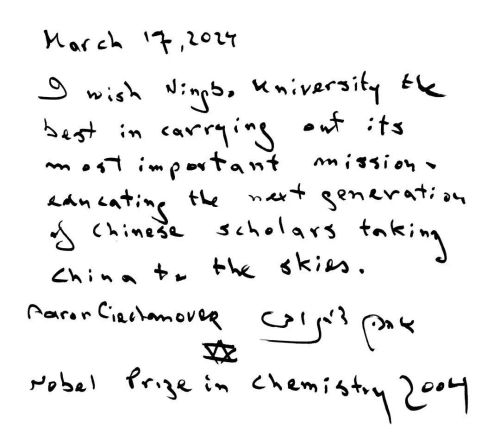 March 17, 2024
I wish Ningbo University the
best in carrying out its
most important mission -
educating the next generation
of Chinese scholars taking
China to the skies.
Aaron Ciechanover
Nobel Prize in Chemistry 2004